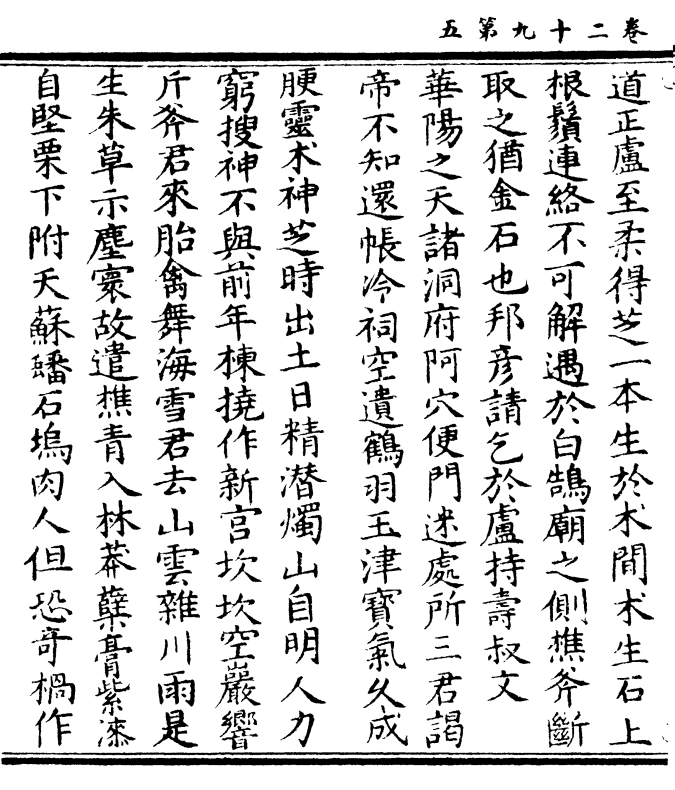 五第九十二卷
道正盧至柔得芝一本生於朮間朮生石上
根鬚連絡不可解遇於白鵠廟之側樵斧斷
取之猶金石也邦彥請乞於盧持壽叔文
華陽之天諸洞府阿穴便門迷處所三君謁
帝不知還帳冷祠空遺鶴羽玉津寶氣久成
腴靈朮神芝時出土日精潛燭山自明人力
窮搜神不與前年棟撓作新宮坎坎空巖響
斤斧君來胎禽舞海雪君去山雲雜川雨是
生朱草示塵寰故遣樵青入林莽蘗膏紫漆
自堅栗下附天蘇蟠石塢肉人但恐奇禍作